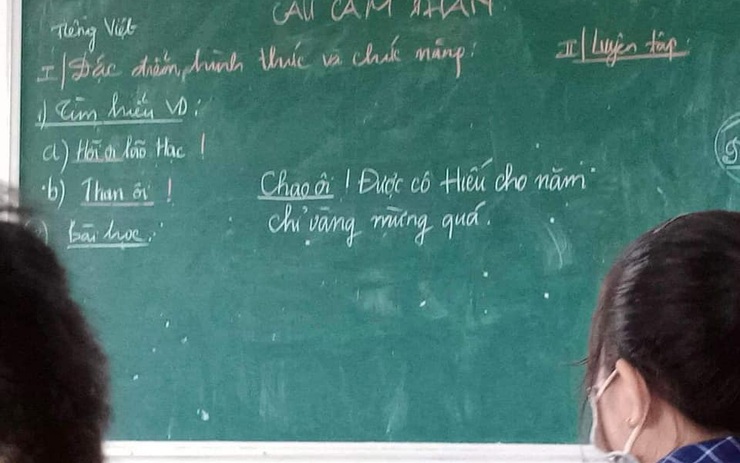 CÂU CẢM THÁN
Tiếng Việt
I/ Đặc điểm hình thức và chức năng:
II/ Luyện tập:
1) Tìm hiểu VD:
a) Hỡi ơi lão Hạc !
b) Than ôi !
Chao ôi ! Được cô Hiếu cho năm
chỉ vàng mừng quá.
Bài học: